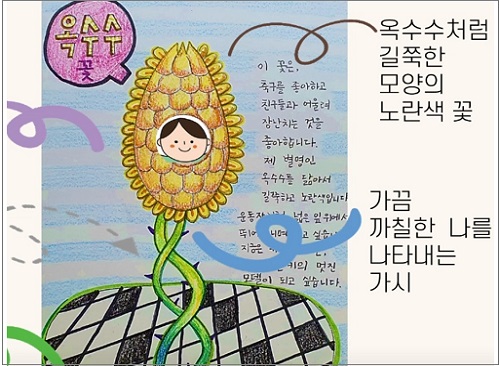 옥수수
꽃
이 꽃은,
축구를 좋아하고
친구들과 어울려
장난치는 것을
좋아합니다.
제 별명인
옥수수를 닮아서
길쭉하고 노란색입니다
넓은 잎 위에서
멋진
모델이 되고 싶습니다.
옥수수처럼
길쭉한
모양의
노란색 꽃
가끔
까칠한 나를
나타내는
가시